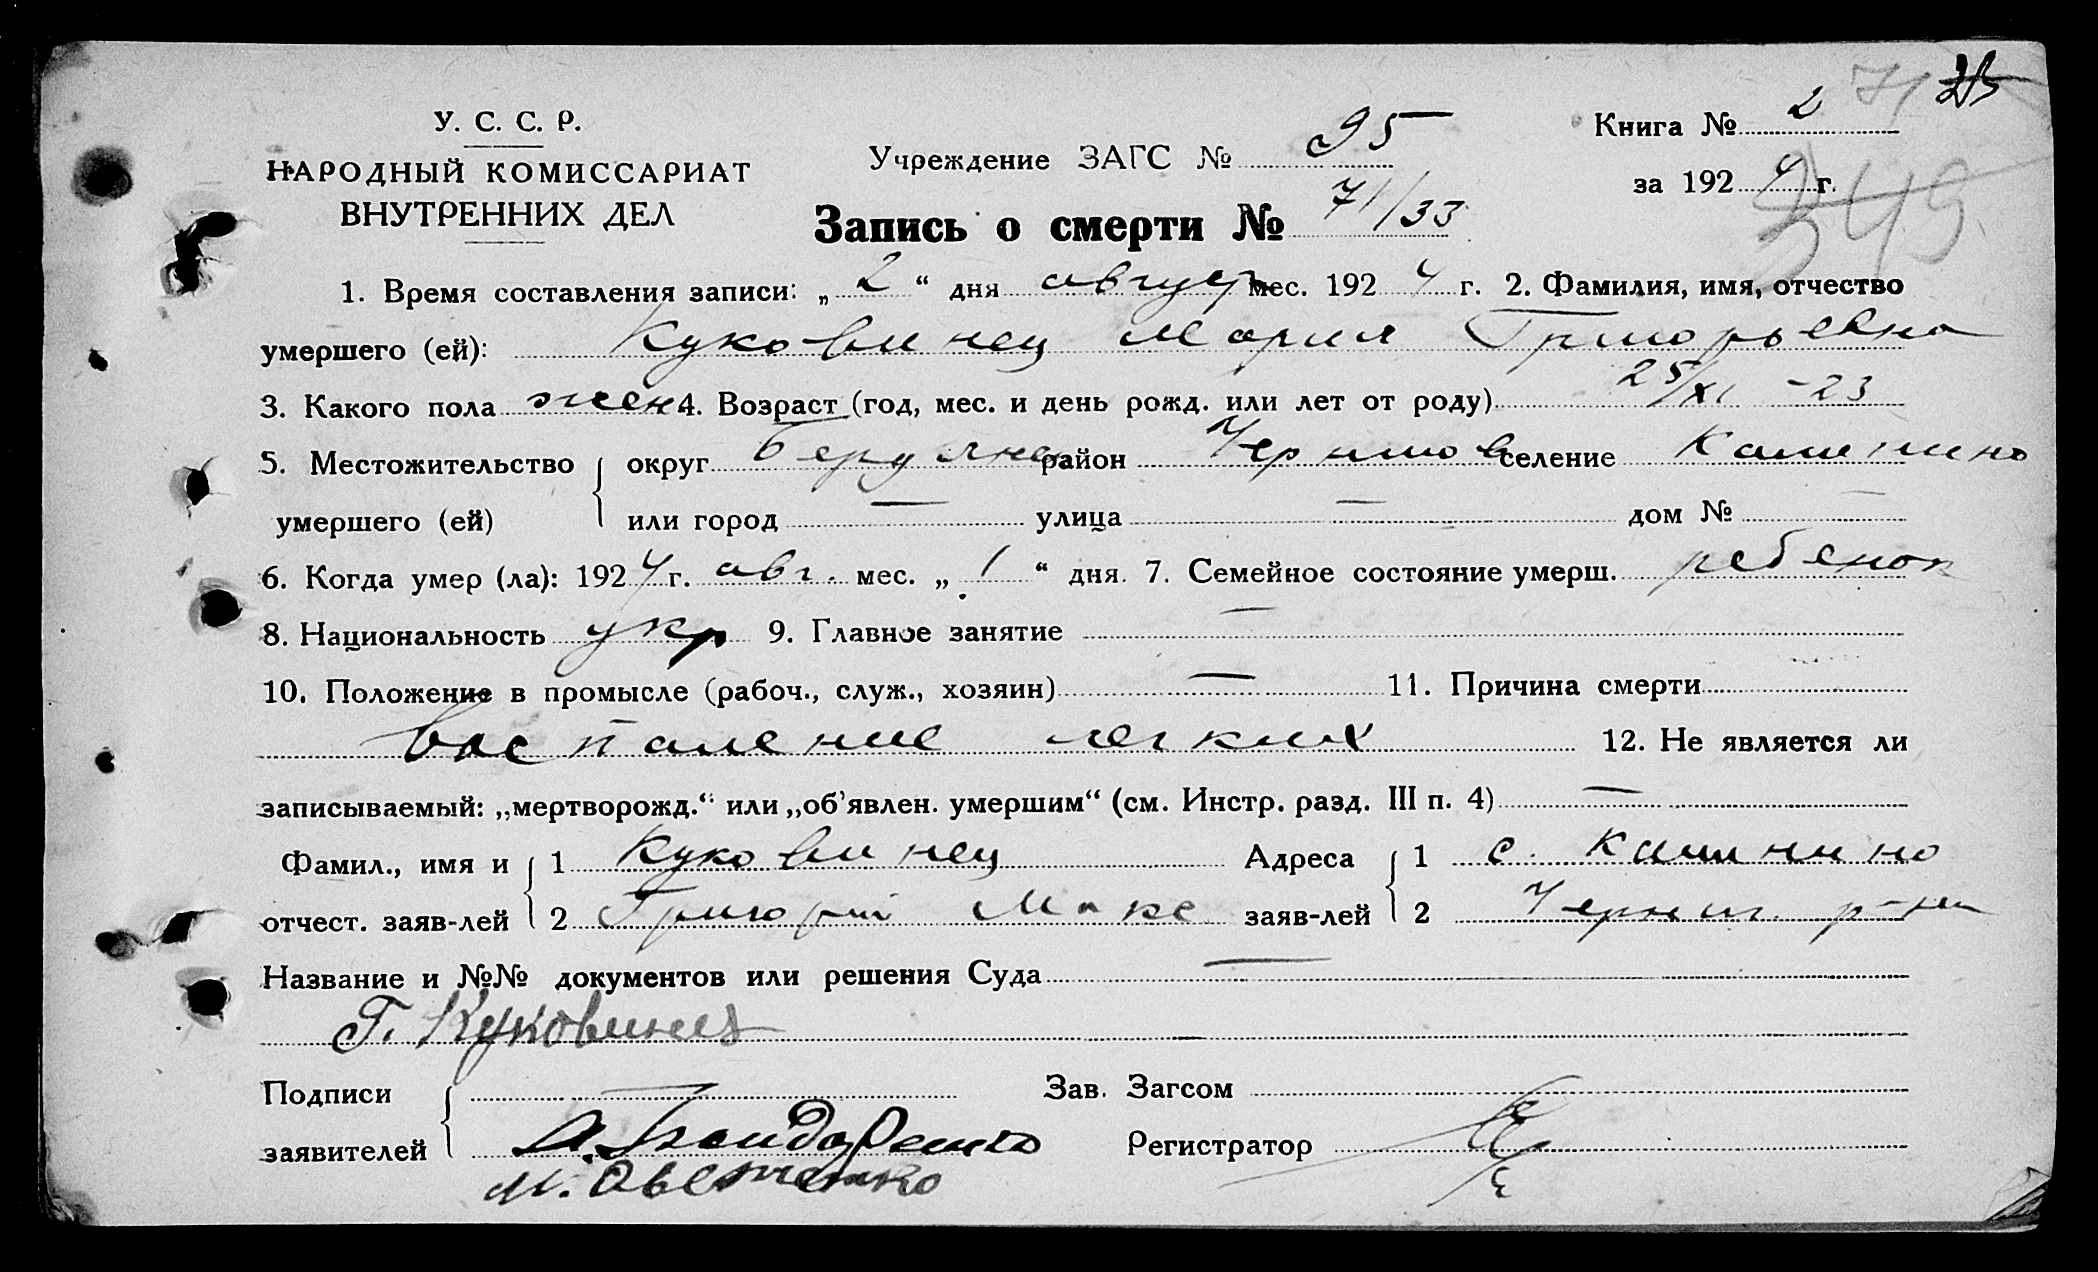 У. С. С. Р.
НАРОДНЫЙ КОМИССАРИАТ
ВНУТРЕННИХ ДЕЛ
Учреждение ЗАГС № 95
Книга № 2 71
за 1924 г.
349
Запись о смерти № 71/33
1. Время составления записи: „2“ дня август мес. 1924 г. 2. Фамилия, имя, отчество
умершего (ей): Куковинец Мария Григорьевна
3. Какого пола жен 4. Возраст (год, мес. и день рожд. или лет от роду) 25/XI -23
5. Местожительство умершего (ей) { округ Бердянск район Черниговс селение Калинино
или город — улица — дом № —
6. Когда умер (ла): 1924 г. авг. мес. „1“ дня. 7. Семейное состояние умерш. ребенок
8. Национальность укр 9. Главное занятие —
10. Положение в промысле (рабоч., служ., хозяин) — 11. Причина смерти
воспаление легких 12. Не является ли
записываемый: „мертворожд.“ или „об'явлен. умершим“ (см. Инстр. разд. III п. 4) —
Фамил., имя и отчест. заяв-лей { 1 Куковинец Адреса заяв-лей { 1 с. Калинино
2 Григорий Макс 2 Черниг. р-на
Название и №№ документов или решения Суда —
Г. Куковинец
Подписи заявителей { Зав. Загсом
А. Бондаренко Регистратор
М.